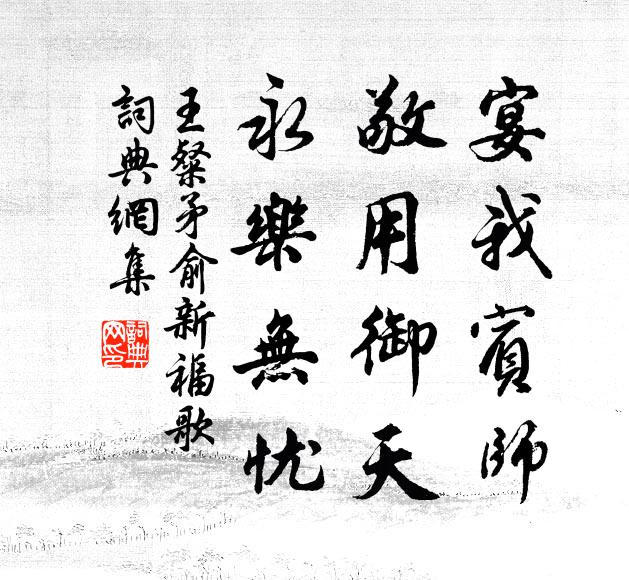 宴我賓師
敬用御天
永樂無忧
王粲矛俞新福歌
詞典網集
詞典网印